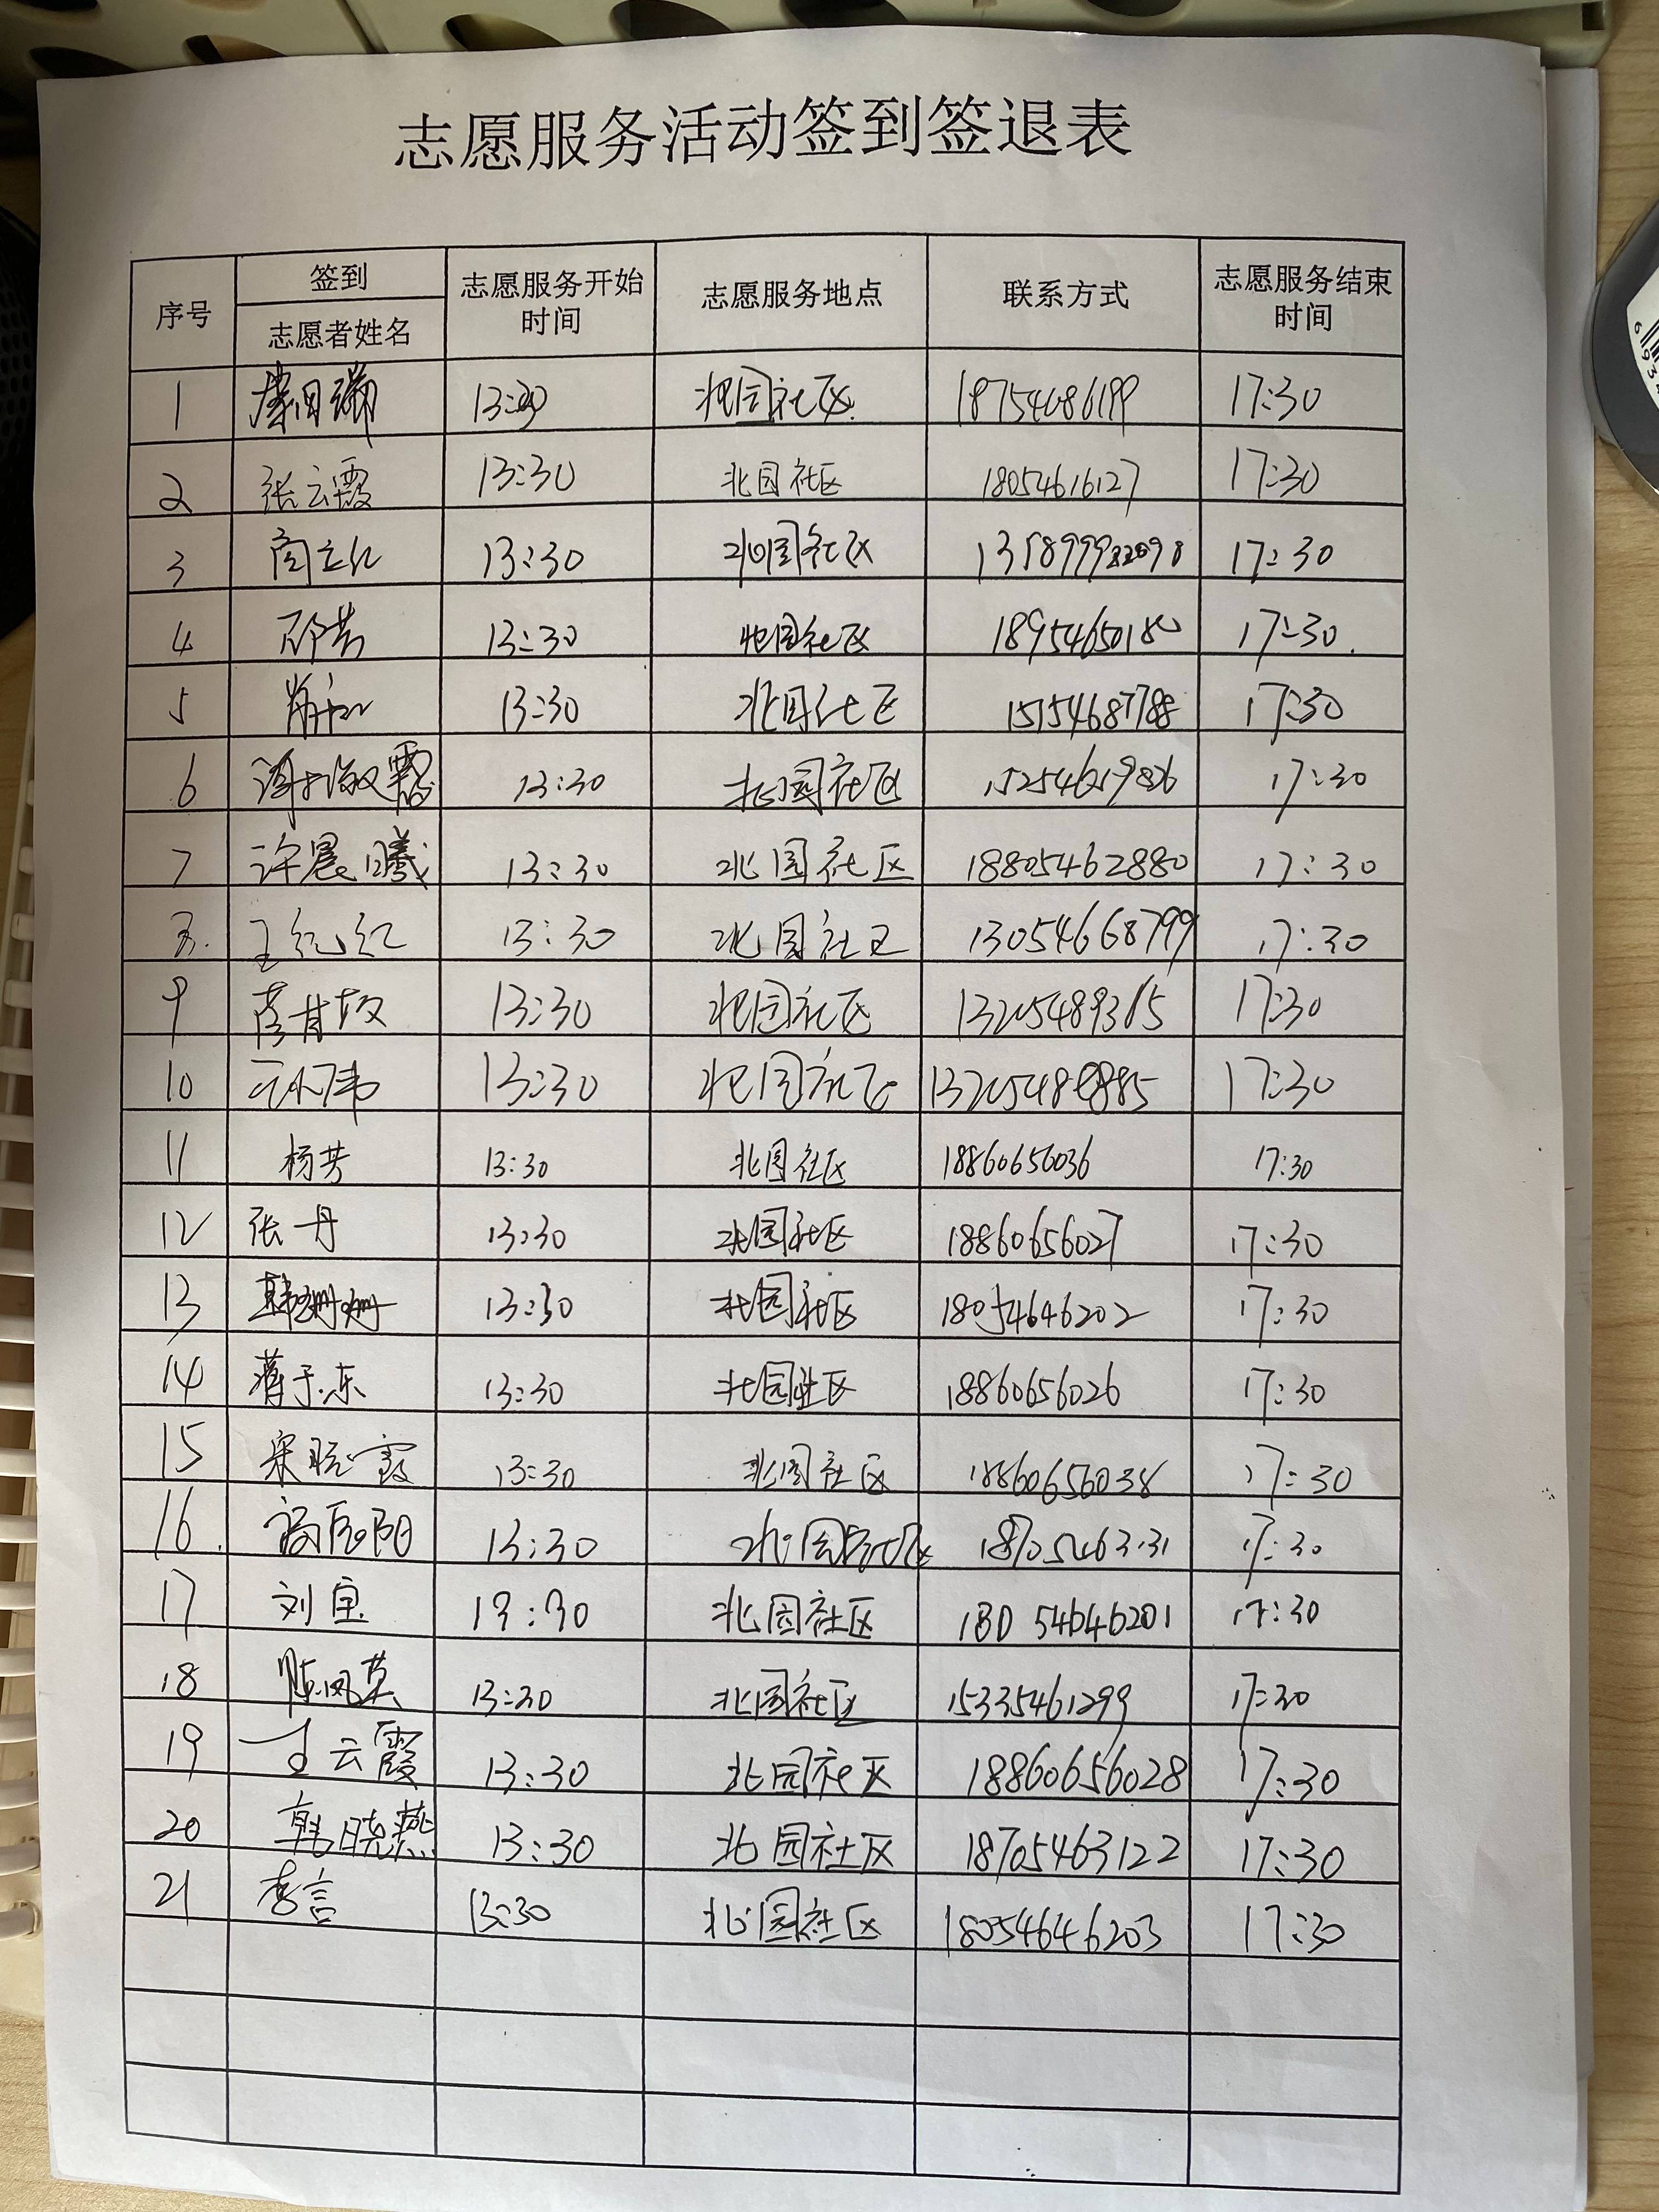 志愿服务活动签到签退表
序号 签到 志愿者姓名 志愿服务开始时间 志愿服务地点 联系方式 志愿服务结束时间
1 13:30 北园社区 17:30
2 张云霞 13:30 北园社区 18054616127 17:30
3 13:30 北园社区 17:30
4 邵芳 13:30 北园社区 18954650180 17:30
5 13:30 北园社区 15154687788 17:30
6 13:30 北园社区 15254619826 17:30
7 许晨曦 13:30 北园社区 18805462880 17:30
8 王纪红 13:30 北园社区 13054668799 17:30
9 13:30 北园社区 13205489315 17:30
10 13:30 北园社区 17:30
11 杨芳 13:30 北园社区 18860656036 17:30
12 张丹 13:30 北园社区 18860656027 17:30
13 韩珊珊 13:30 北园社区 18054646202 17:30
14 蒋于东 13:30 北园社区 18860656026 17:30
15 宋晓霞 13:30 北园社区 18860656038 17:30
16 13:30 北园社区 17:30
17 刘宝 13:30 北园社区 18054646201 17:30
18 陈凤英 13:30 北园社区 15335461299 17:30
19 王云霞 13:30 北园社区 18860656028 17:30
20 韩晓燕 13:30 北园社区 18705463122 17:30
21 李言 13:30 北园社区 18054646203 17:30